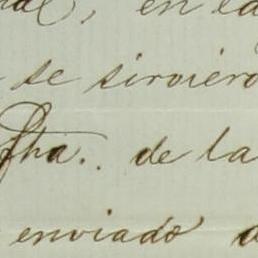 , en la
se sirviero
fha.. de la
enviado